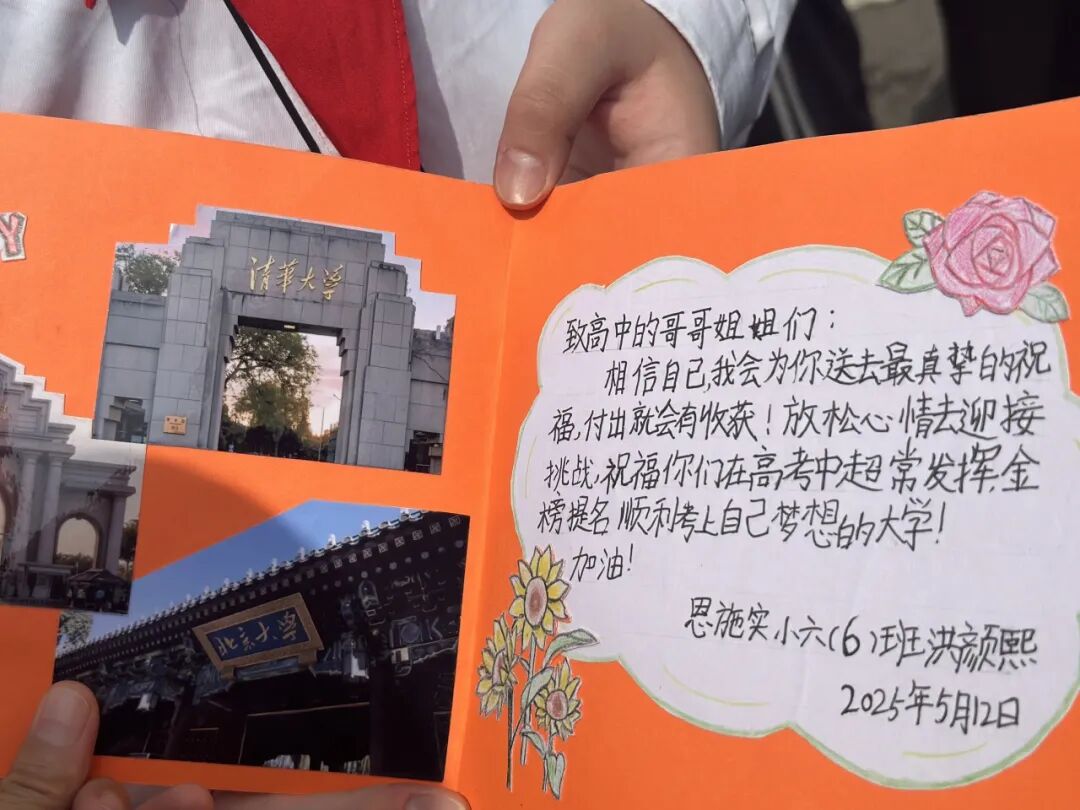 Y
清华大学
北京大学
致高中的哥哥姐姐们：
相信自己，我会为你送去最真挚的祝
福，付出就会有收获！放松心情去迎接
挑战，祝福你们在高考中超常发挥，金
榜提名 顺利考上自己梦想的大学！
加油！
恩施实小六(6)班洪颜熙
2025年5月12日